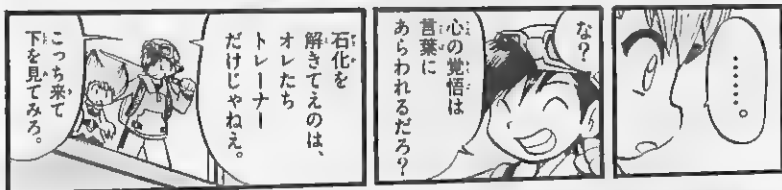 ……。
な？
心の覚悟は
言葉に
あらわれるだろ？
石化を
解きてえのは、
オレたち
トレーナー
だけじゃねえ。
こっち来て
下を見てみろ。